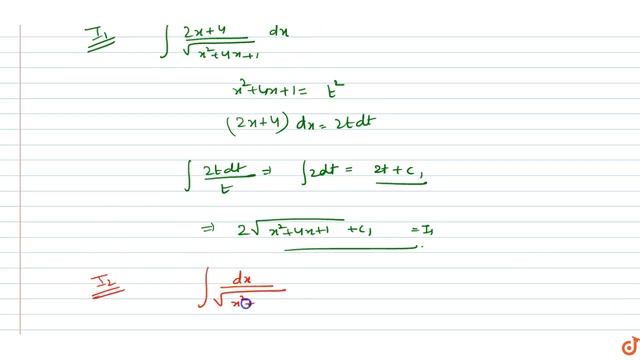 I₁ ∫ (2x+4)/√(x²+4x+1) dx
x²+4x+1 = t²
(2x+4) dx = 2t dt
∫ 2t dt/t ⇒ ∫ 2dt = 2t + c₁
⇒ 2√(x²+4x+1) + c₁ = I₁
I₂ ∫ dx/√(x²+
doubtnut